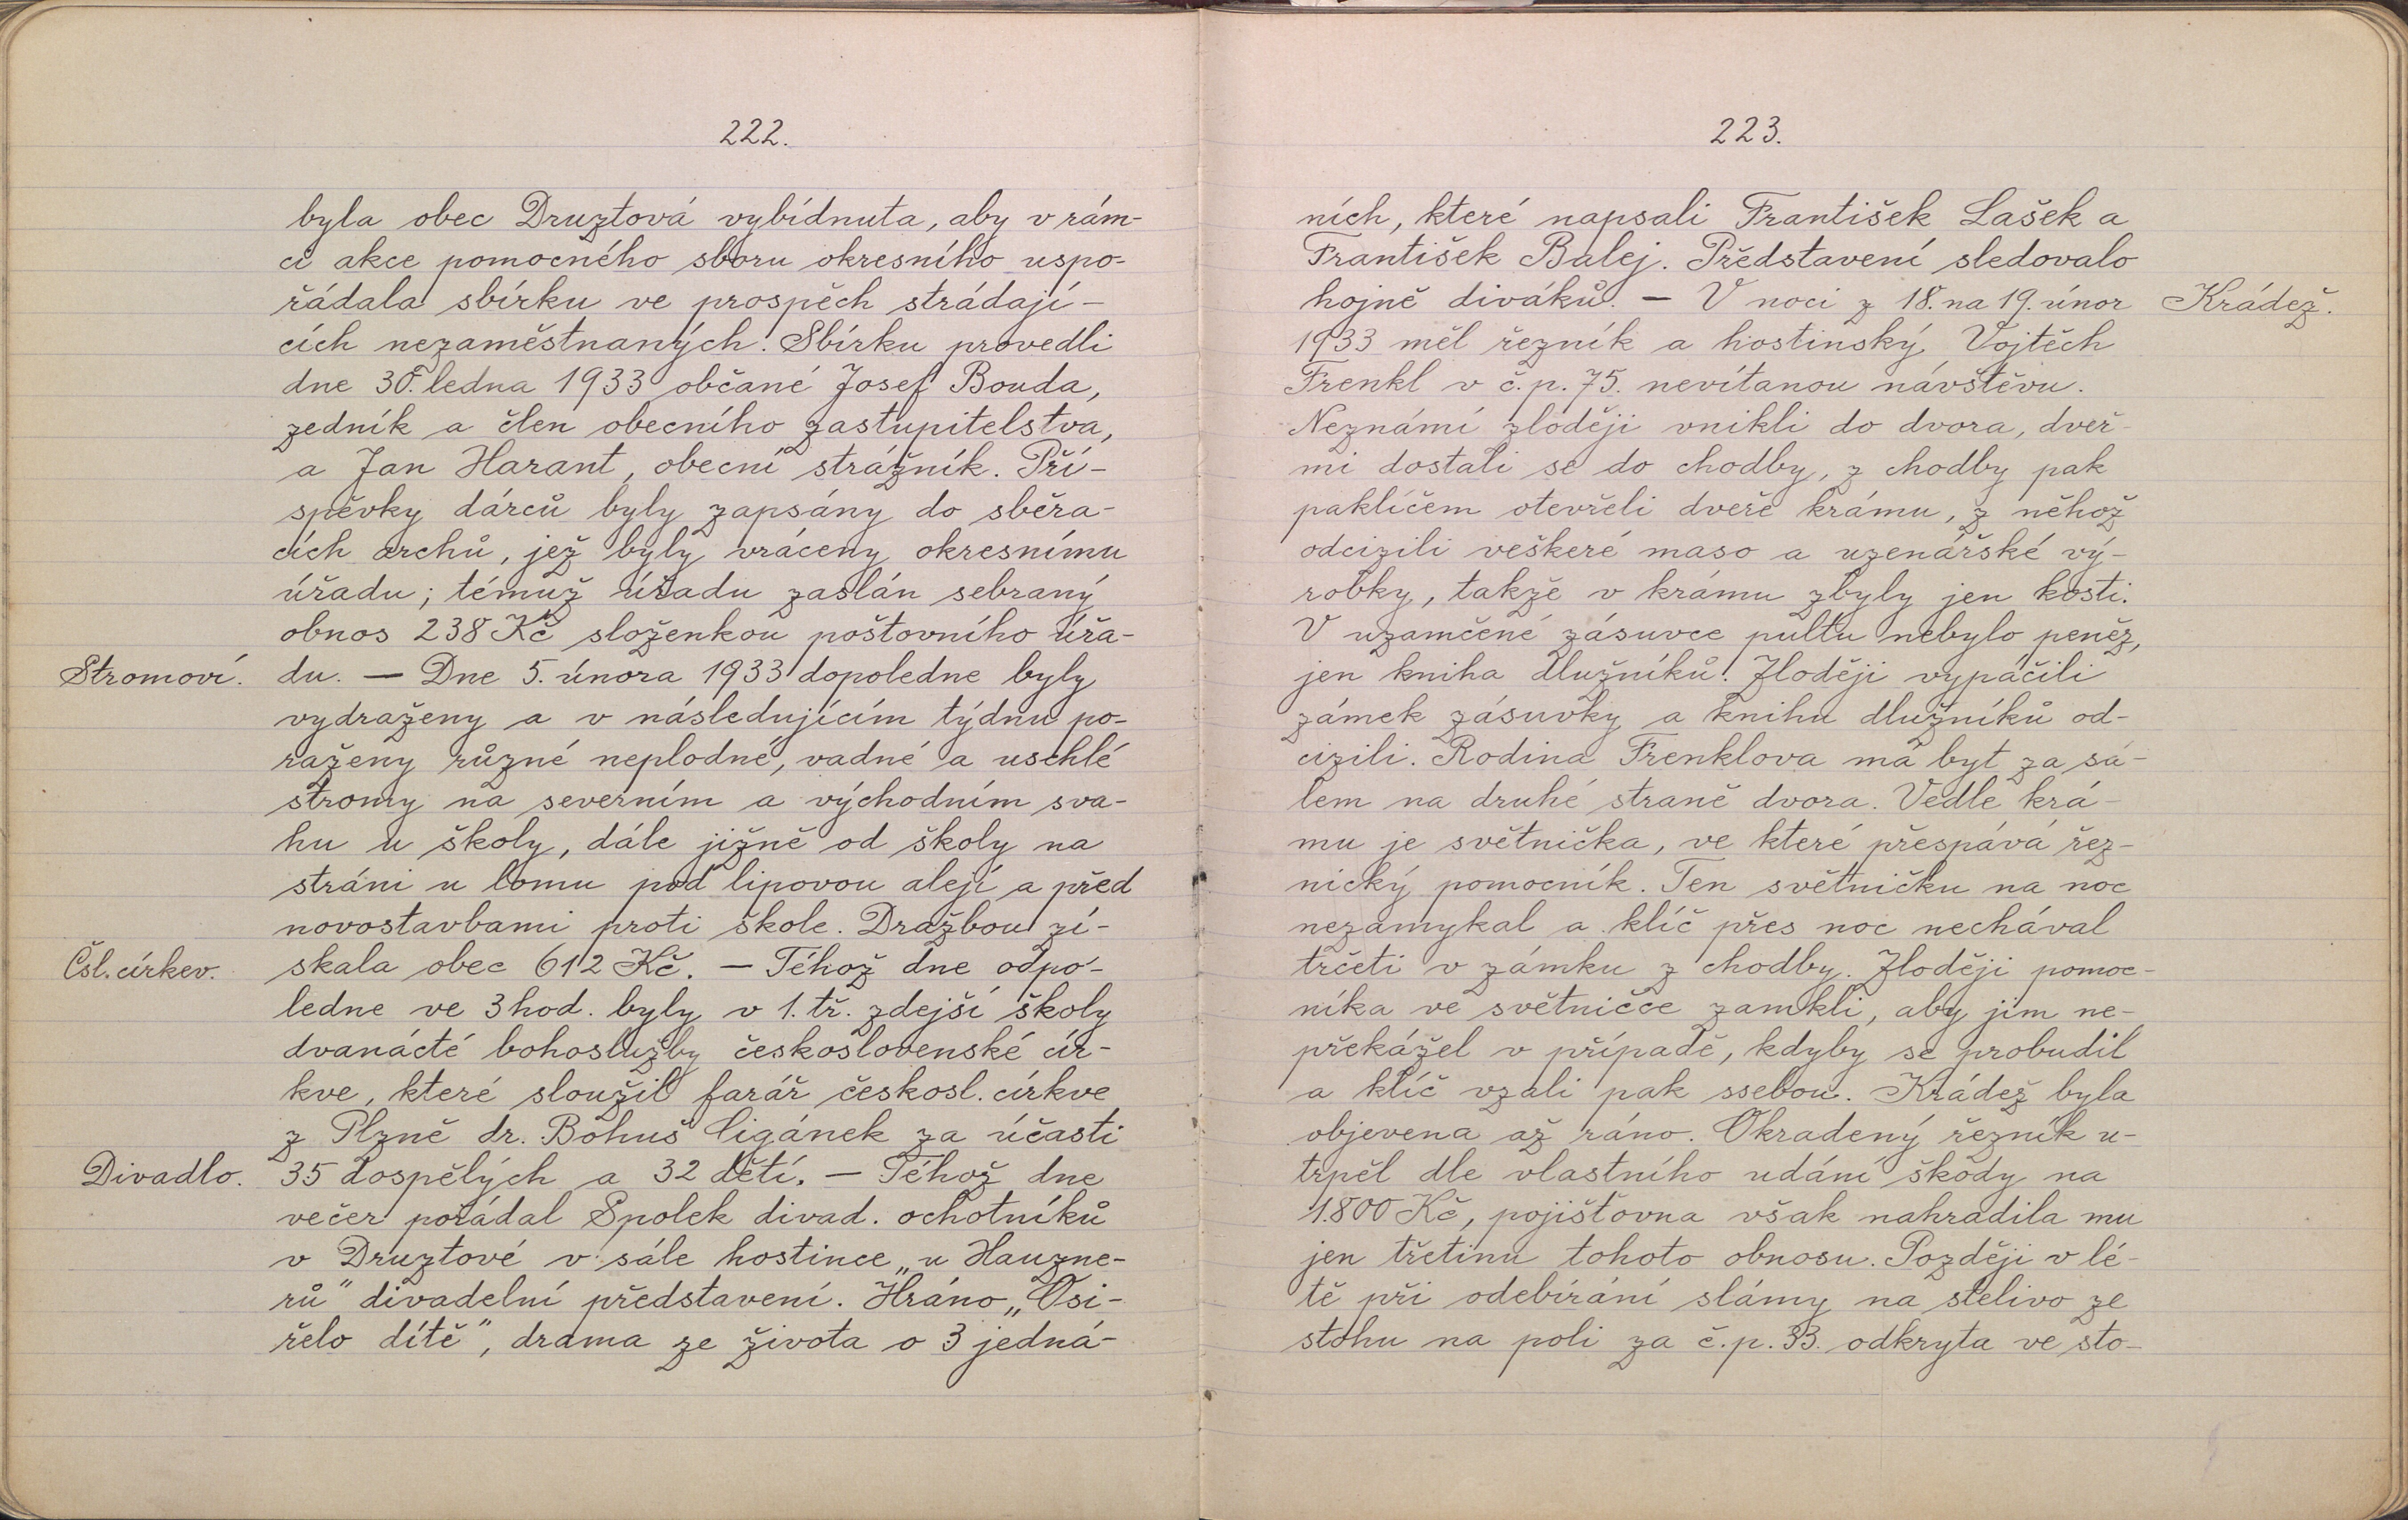 222.
byla obec Druztová vybídnuta, aby v rám-
ci akce pomocného sboru okresního uspo-
řádala sbírku ve prospěch strádají-
cích nezaměstnaných. Sbírku provedli
dne 30. ledna 1933 občané Josef Bouda,
zedník a člen obecního zastupitelstva,
a Jan Harant, obecní strážník. Pří-
spěvky dárců byly zapsány do sběra-
cích archů, jež byly vráceny okresnímu
úřadu; témuž úřadu zaslán sebraný
obnos 238 Kč složenkou poštovního úřa-
Stromoví. du. — Dne 5. února 1933 dopoledne byly
vydraženy a v následujícím týdnu po-
raženy různé neplodné, vadné a uschlé
stromy na severním a východním sva-
hu u školy, dále jižně od školy na
stráni u lomu pod lipovou alejí a před
novostavbami proti škole. Dražbou zí-
Čsl. církev. skala obec 612 Kč. — Téhož dne odpo-
ledne ve 3 hod. byly v 1. tř. zdejší školy
dvanácté bohoslužby československé cír-
kve, které sloužil farář českosl. církve
z Plzně dr. Bohuš Cigánek za účasti
Divadlo. 35 dospělých a 32 dětí. — Téhož dne
večer pořádal Spolek divad. ochotníků
v Druztové v sále hostince „u Hauzne-
rů" divadelní představení. Hráno „Osi-
řelo dítě", drama ze života o 3 jedná-
223.
ních, které napsali František Lašek a
František Balej. Představení sledovalo
hojně diváků. — V noci z 18. na 19. únor Krádež.
1933 měl řezník a hostinský Vojtěch
Frenkl v č.p. 75. nevítanou návštěvu.
Neznámí zloději vnikli do dvora, dveř-
mi dostali se do chodby, z chodby pak
paklíčem otevřeli dveře krámu, z něhož
odcizili veškeré maso a uzenářské vý-
robky, takže v krámu zbyly jen kosti.
V uzamčené zásuvce pultu nebylo peněz,
jen kniha dlužníků. Zloději vypáčili
zámek zásuvky a knihu dlužníků od-
cizili. Rodina Frenklova má byt za sá-
lem na druhé straně dvora. Vedle krá-
mu je světnička, ve které přespává řez-
nický pomocník. Ten světničku na noc
nezamykal a klíč přes noc nechával
trčeti v zámku z chodby. Zloději pomoc-
níka ve světničce zamkli, aby jim ne-
překážel v případě, kdyby se probudil
a klíč vzali pak ssebou. Krádež byla
objevena až ráno. Okradený řezník u-
trpěl dle vlastního udání škody na
1.800 Kč, pojišťovna však nahradila mu
jen třetinu tohoto obnosu. Později v lé-
tě při odebírání slámy na stelivo ze
stohu na poli za č.p. 33. odkryta ve sto-